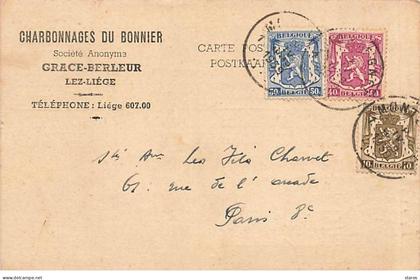 CHARBONNAGES DU BONNIER
Société Anonyme
GRACE-BERLEUR
LEZ-LIÉGE
TÉLÉPHONE: Liége 607.00
CARTE POS
POSTKAA
BELGIE
50 50
BELGIE
40
BELGIE
10 10
Sté Ame Les Fils Charvet
61. rue de l'arcade
Paris 8e